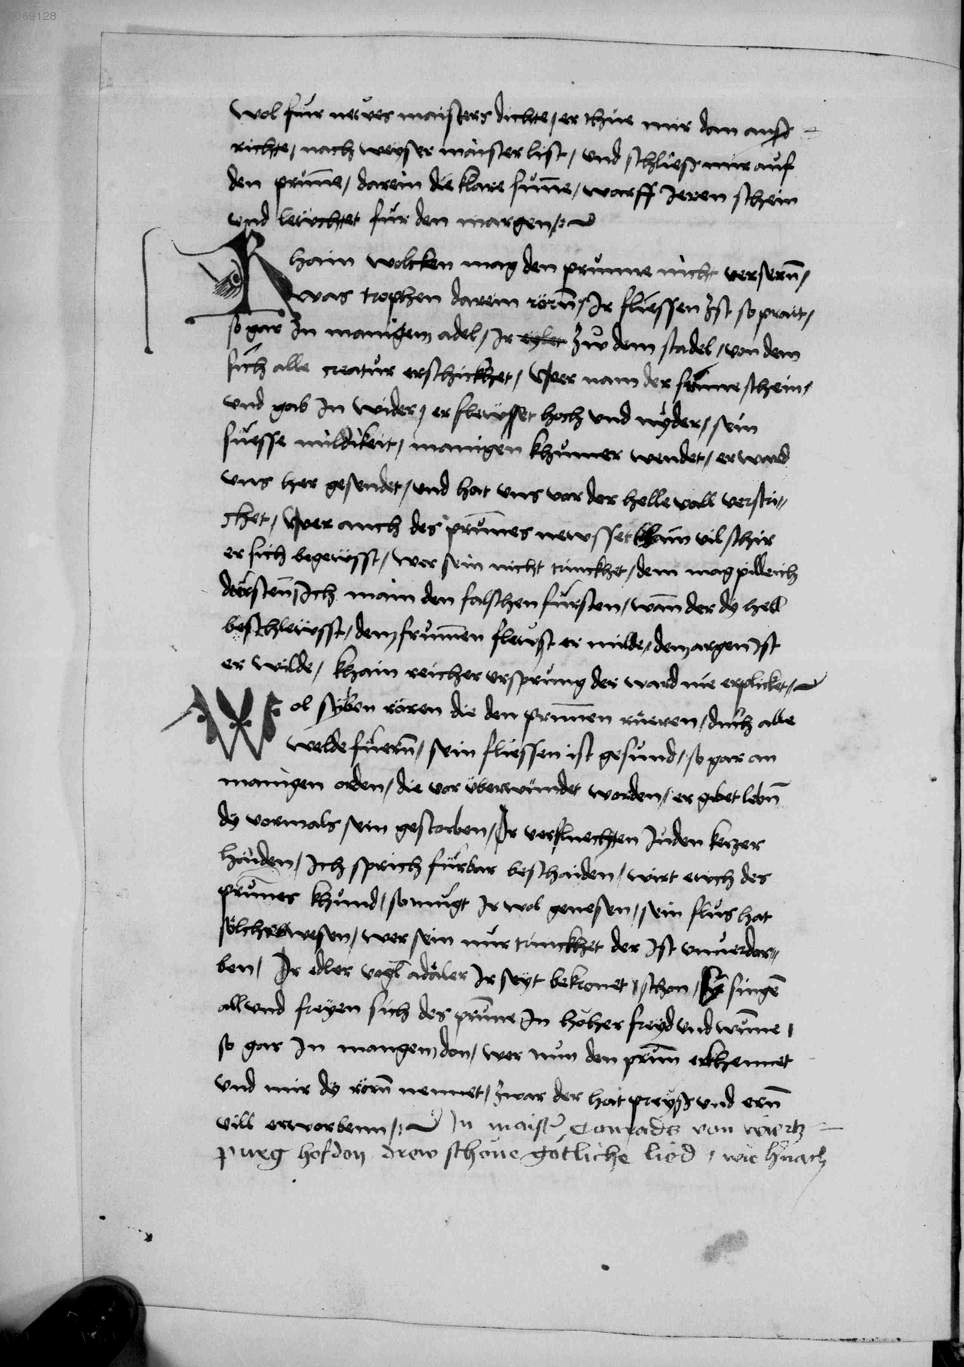 069128
wol fur newes maisters dichte, er thue mir dan auss
richte, nach weyser maister list, und schliess mir auf
den prun̄e, darein die klare sun̄e, warff Ieren schein
und leuchtet fur den margen,
Khain wolcken mag den prunne nicht versern̄,
was trophen darein rörn̄, Ir fliessen Ist so prait,
so gar In manigem adel, Ir zu dem stadel, von dem
sich alle creatur erschickhet, Wer nam der sunne schein,
und gab In wider, er flewsset hoch und nyder, sein
suesse mildikeit, manigen khumer wendet, er ward
uns her gesendet, und hat uns vor der helle vall verstri-
chet, Wer auch des prun̄es newsset khain vil schir
er sich begewsst, wer sein nicht trinckhet, dem mag pilleich
dürsten̄ Ich main den falschen fursten, wan̄ der dy hell
beschlewsst, dem frum̄en flewst er milde, dem argen Ist
er wilde, khain reicher ursprung der ward nie erplicket,
Wol syben rören die den prun̄en rueren, durch alle
welde fuern̄, sein fliessen ist gesund, so gar an
manigen orden, die vor uberwundet worden, er gibet lebn̄
dy vormals sein gestorben, Ir verfluechten Iuden keczer
haiden, Ich sprich furbar beschaiden, wirt euch des
prun̄es khund, so mugt Ir wol genesen, sein flus hat
solches wesen, wer sein nur trinckhet der Ist unverdor-
ben, Ir edler vogl adäler Ir seyt bekronet, schon, Sy singē
all und freyen sich des prun̄e In hoher freyd und wun̄e,
so gar In mangem don, wer nun den prun̄ erkhennet
und mir dy rörn̄ nennet, zwar der hat preyss und ern̄
vill erworbenn,
In maist Conrads von wirtz
purg hofdon drew schöne götliche lied, wie hernach